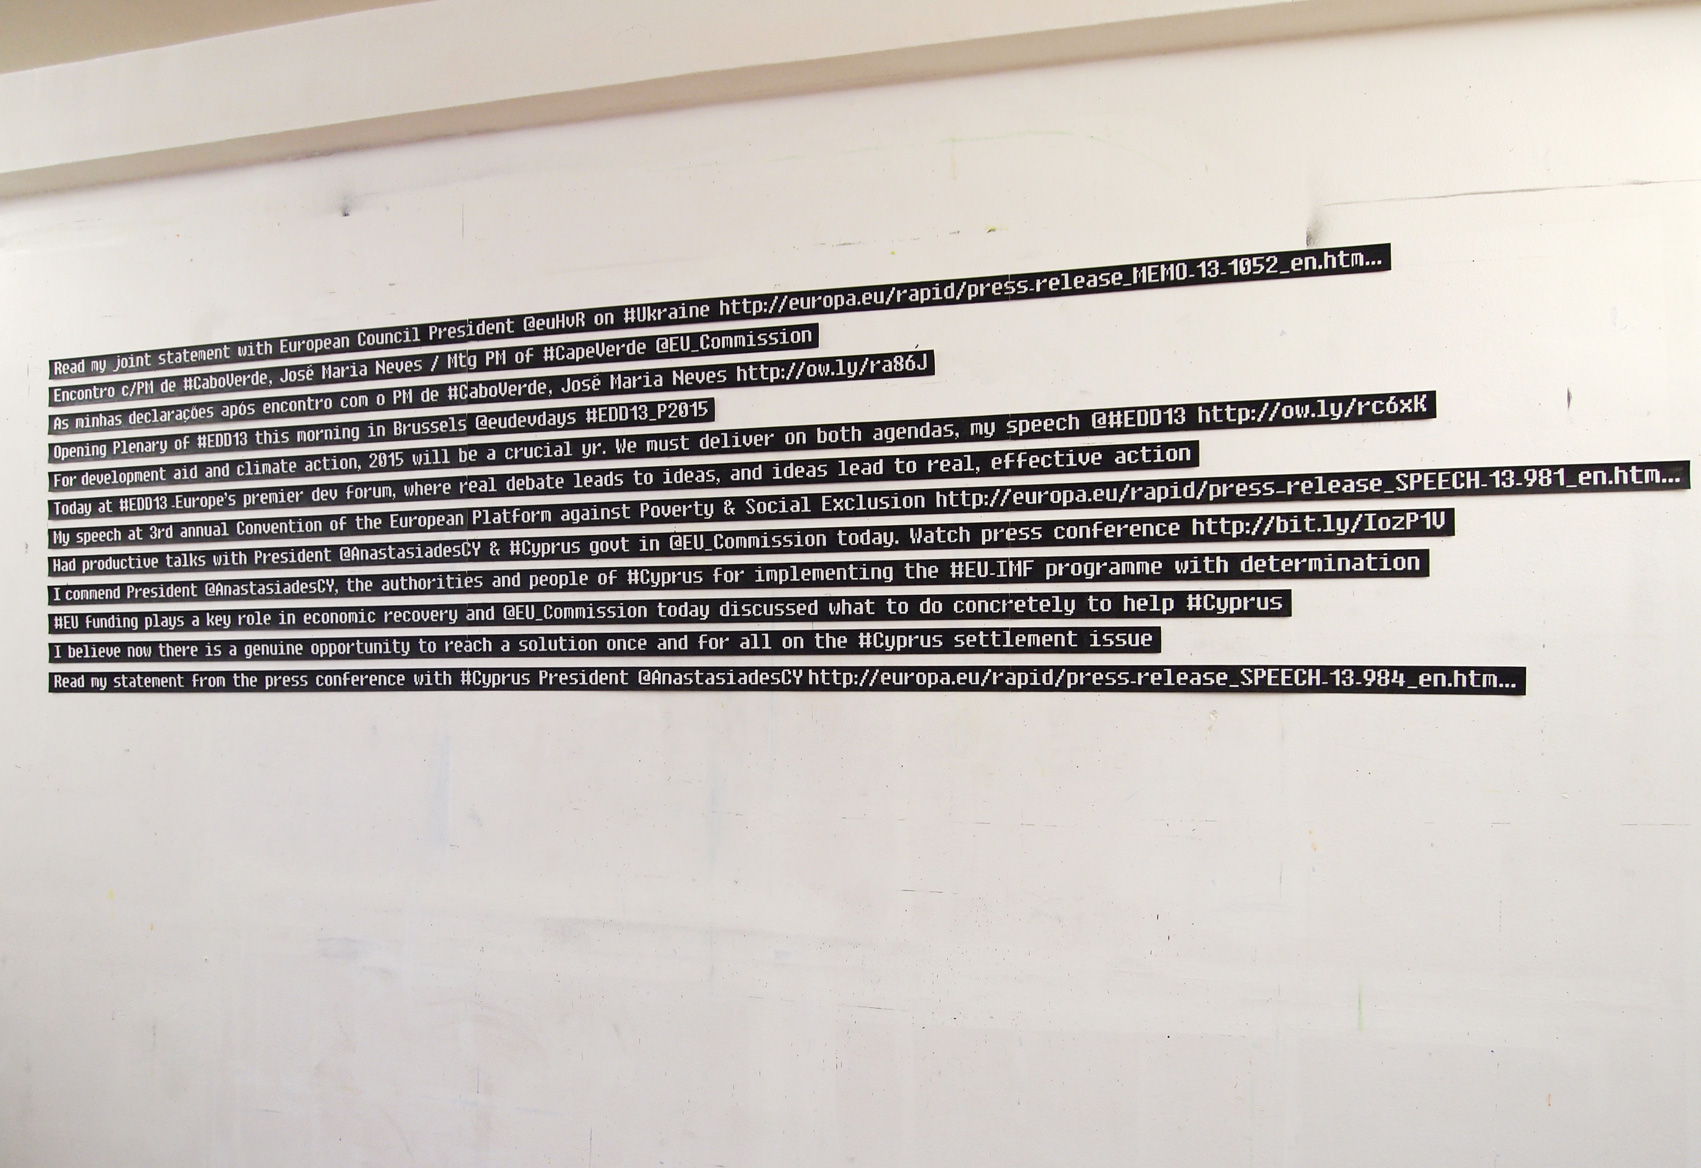 Read my joint statement with European Council President @euHvR on #Ukraine http://europa.eu/rapid/press-release_MEMO-13-1052_en.htm...
Encontro c/PM de #CaboVerde, José Maria Neves / Mtg PM of #CapeVerde @EU_Commission
As minhas declarações após encontro com o PM de #CaboVerde, José Maria Neves http://ow.ly/ra86J
Opening Plenary of #EDD13 this morning in Brussels @eudevdays #EDD13_P2015
For development aid and climate action, 2015 will be a crucial yr. We must deliver on both agendas, my speech @#EDD13 http://ow.ly/rc6xK
Today at #EDD13-Europe's premier dev forum, where real debate leads to ideas, and ideas lead to real, effective action
My speech at 3rd annual Convention of the European Platform against Poverty & Social Exclusion http://europa.eu/rapid/press-release_SPEECH-13-981_en.htm...
Had productive talks with President @AnastasiadesCY & #Cyprus govt in @EU_Commission today. Watch press conference http://bit.ly/IozP1V
I commend President @AnastasiadesCY, the authorities and people of #Cyprus for implementing the #EU-IMF programme with determination
#EU funding plays a key role in economic recovery and @EU_Commission today discussed what to do concretely to help #Cyprus
I believe now there is a genuine opportunity to reach a solution once and for all on the #Cyprus settlement issue
Read my statement from the press conference with #Cyprus President @AnastasiadesCY http://europa.eu/rapid/press-release_SPEECH-13-984_en.htm...